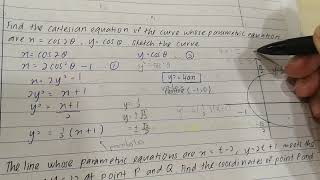 Find the cartesian equation of the curve whose parametric equation
are x = cos2θ, y = cosθ. Sketch the curve
x = cos2θ y = cosθ ②
x = 2cos²θ - 1 ①
x = 2y² - 1 y² = 4ax
2y² = x+1
y² = x+1 / 2
y² = ½ (x+1)
parabola
The line whose parametric equations are x = t-2, y = 2t+1 meets the
at point P and Q. Find the coordinates of point P and